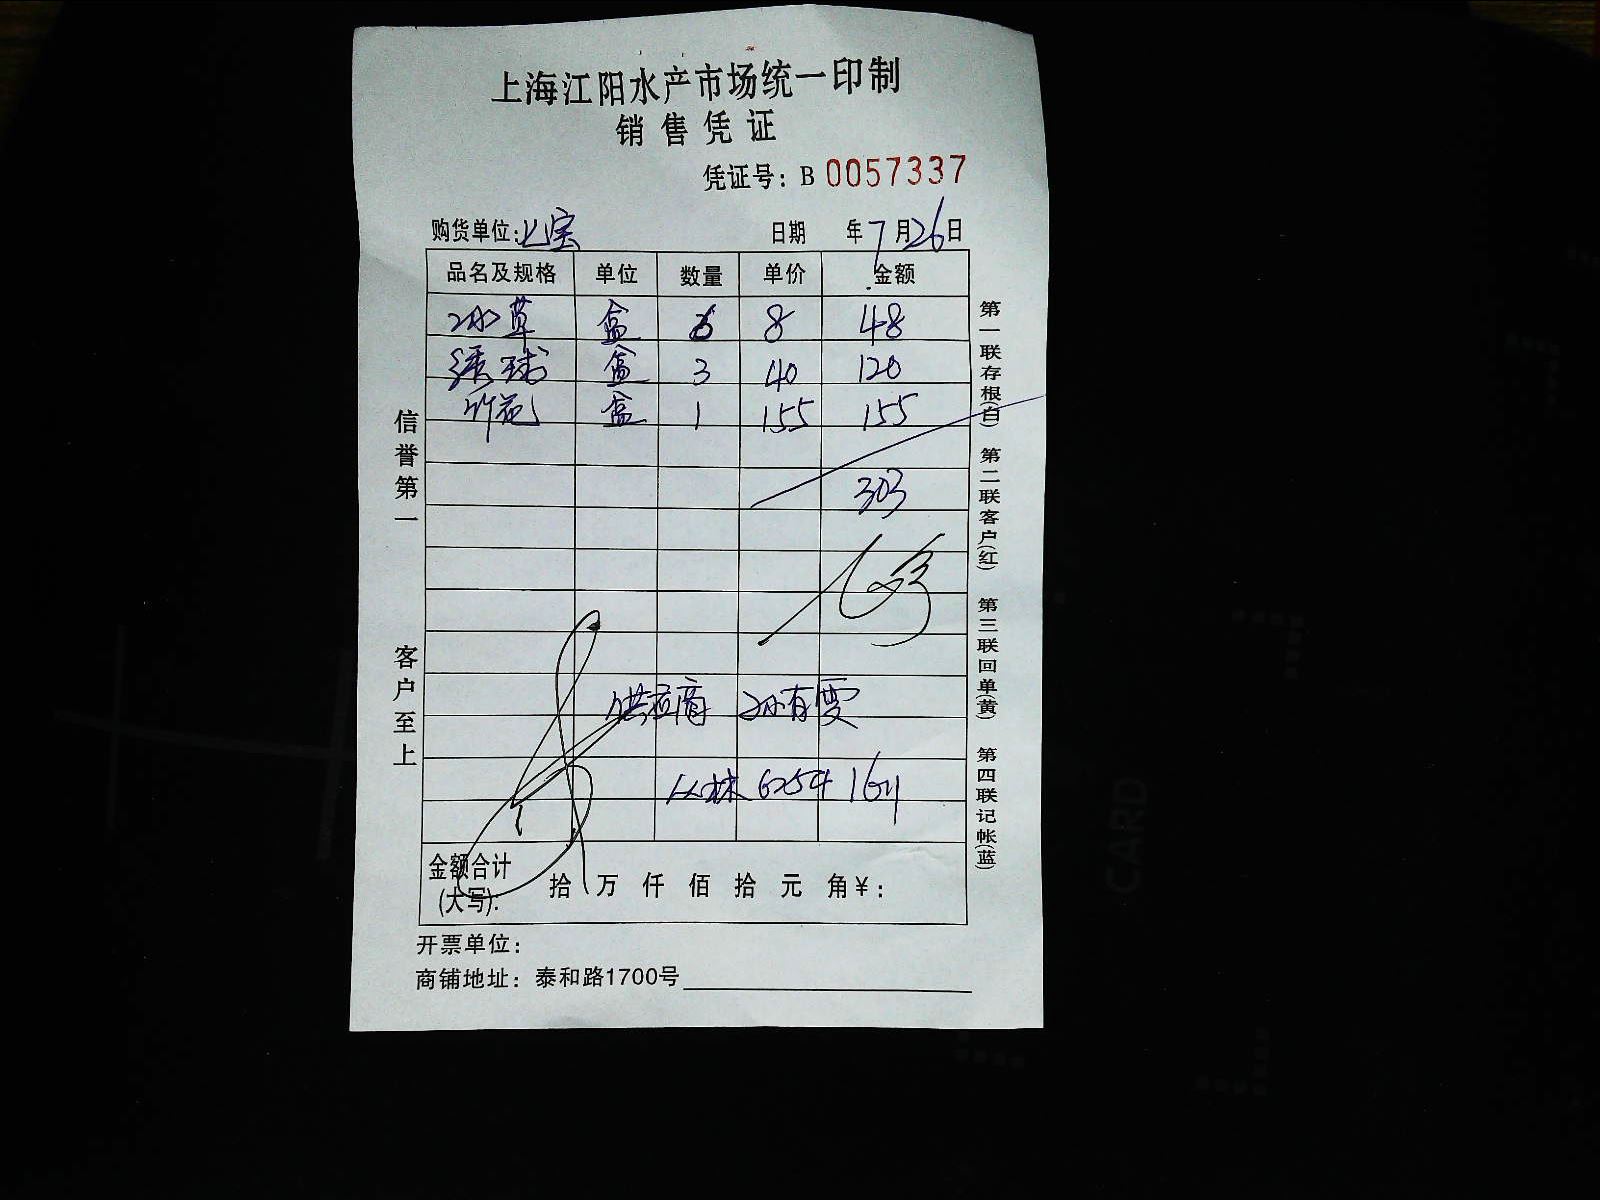 上海江阳水产市场统一印制
销售凭证
凭证号：B 0057337
购货单位： 日期 年7月26日
品名及规格 单位 数量 单价 金额
冰草 盒 6 8 48
绣球 盒 3 40 120
竹苑 盒 1 155 155
303
供应商 孙有雯
丛林 6254 1611
金额合计
(大写): 拾 万 仟 佰 拾 元 角 ￥:
开票单位：
商铺地址：泰和路1700号
信誉第一
客户至上
第一联存根(白)
第二联客户(红)
第三联回单(黄)
第四联记帐(蓝)
CARD